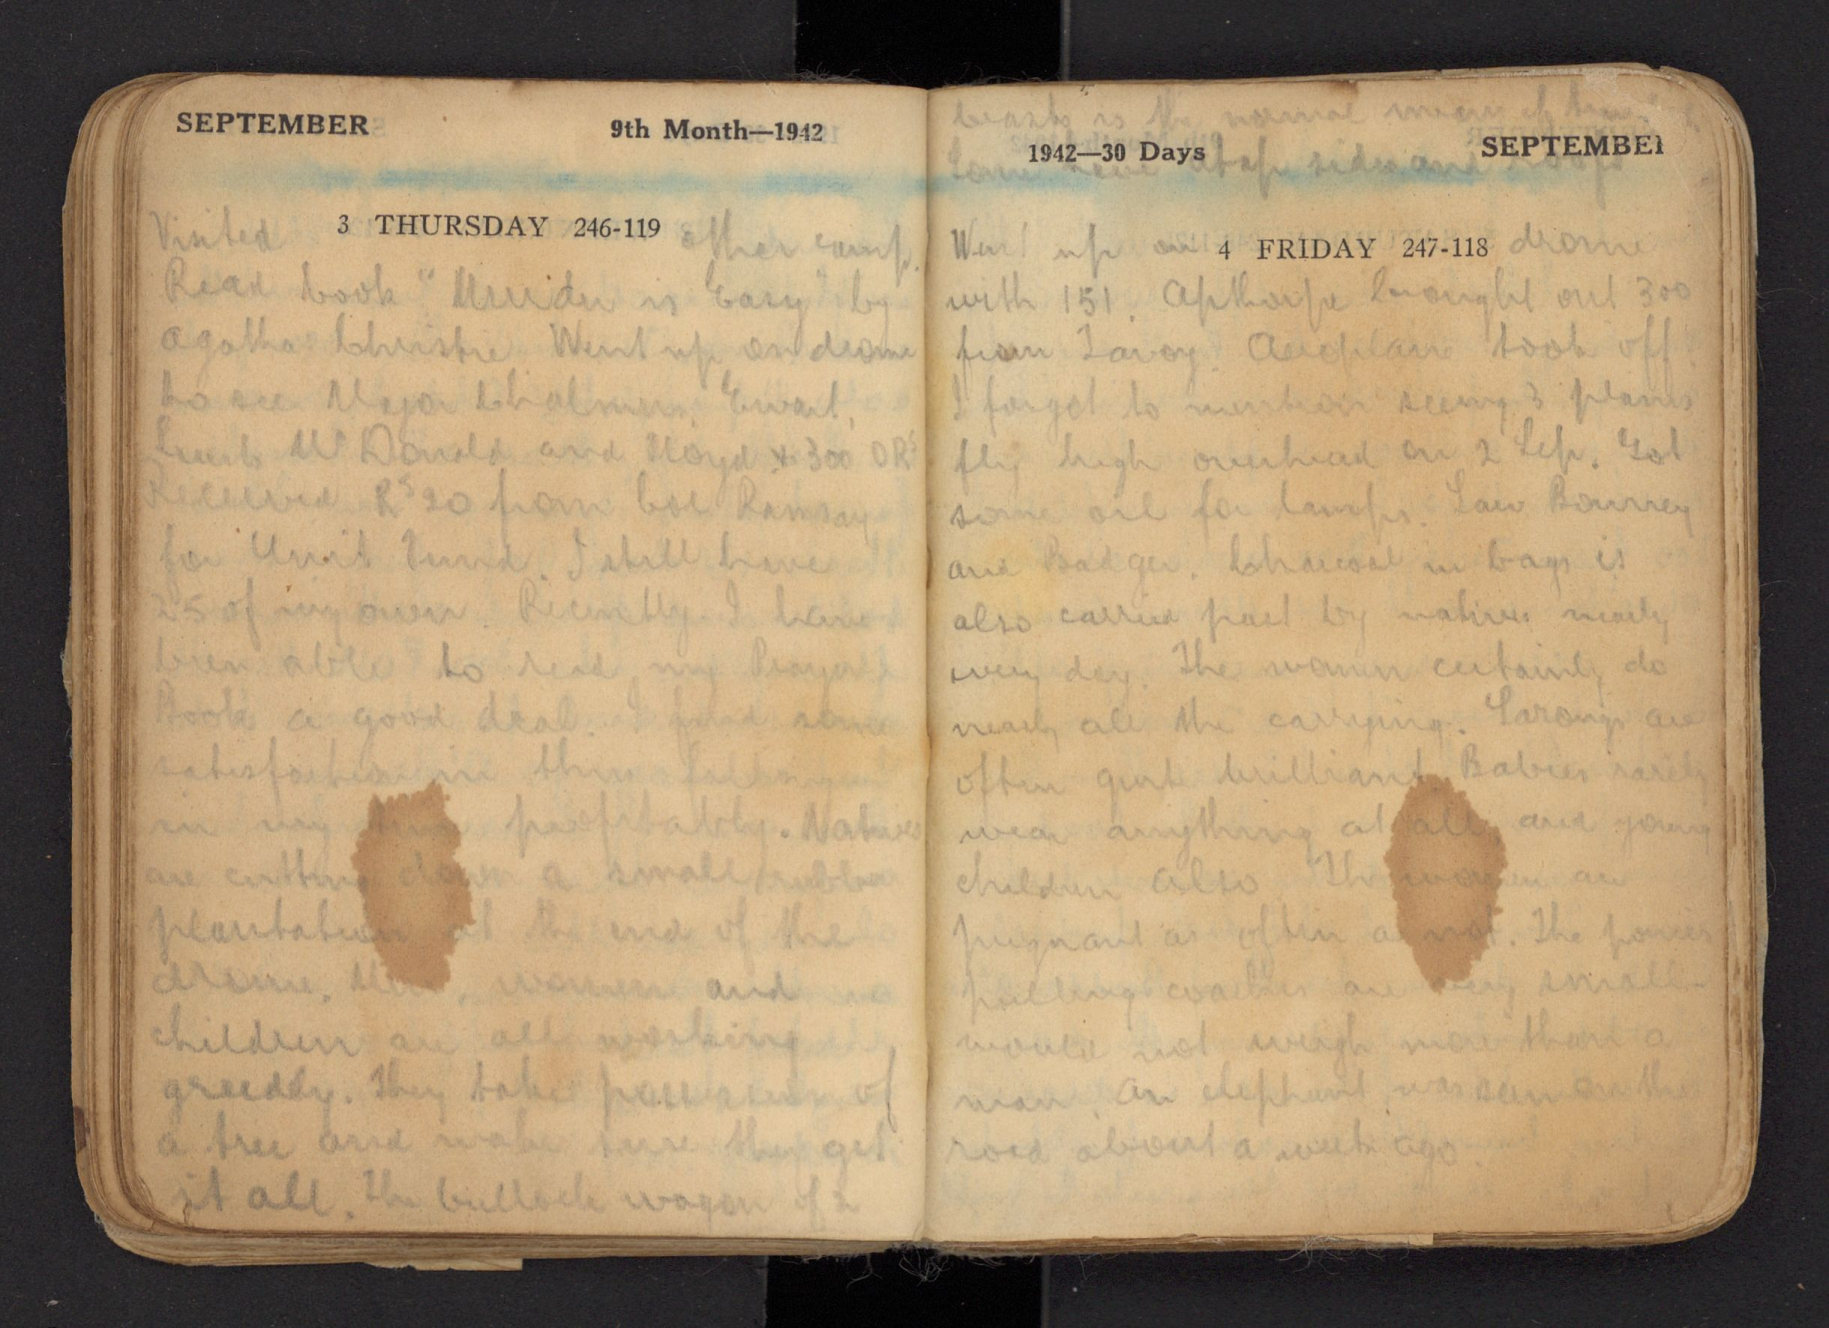 SEPTEMBER 9th Month—1942
3 THURSDAY 246-119
Visited other camp.
Read book "Murder is Easy" by
Agatha Christie Went up on drome
to see Major Chalmers, Ewart,
McDonald and Lloyd + 300 ORs
Received Rs 20 from Col Ramsay
for Unit Fund. I still have
25 of my own. Recently I have
been able to read my Prayer
Book a good deal. I find some
satisfaction in this
in my time profitably. Natives
are cutting down a small rubber
plantation at the end of the
drome. Men, women and
children are all working
greedily. They take possession of
a tree and make sure they get
it all. The bullock wagon of 2
1942—30 Days SEPTEMBER
beasts is the normal means of
Some have atap sides and roofs
4 FRIDAY 247-118
Went up on drome
with 151. Apthorpe brought out 300
from Tavoy. Aeroplane took off
I forgot to mention seeing 3 planes
fly high overhead on 2 Sep. Got
some oil for lamps. Saw Bourney
and Badger. Charcoal in bags is
also carried past by natives nearly
every day. The women certainly do
nearly all the carrying. Sarongs are
often quite brilliant. Babies rarely
wear anything at all, and young
children also. The women are
pregnant as often as not. The ponies
pulling coaches are very small -
would not weigh more than a
man. An elephant was seen on the
road about a week ago.